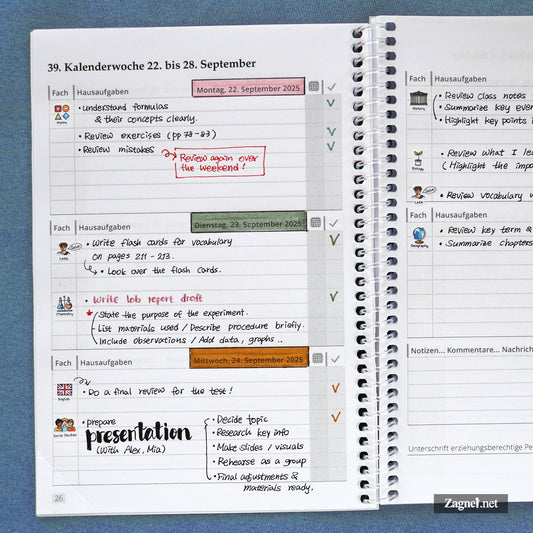 39. Kalenderwoche 22. bis 28. September
Fach Hausaufgaben Montag, 22. September 2025
Maths
• understand formulas
& their concepts clearly.
• Review exercises (pp 78-83)
• Review mistakes
Review again over
the weekend!
Fach Hausaufgaben Dienstag, 23. September 2025
Latin
• Write flash cards for vocabulary
on pages 211 - 213.
• Look over the flash cards.
Chemistry
• Write lab report draft
State the purpose of the experiment.
- List materials used / Describe procedure briefly.
Include observations / Add data, graphs ..
Fach Hausaufgaben Mittwoch, 24. September 2025
English
• Do a final review for the test!
Social Studies
• prepare
presentation
(With Alex, Mia)
• Decide topic
• Research key info
• Make slides / visuals
• Rehearse as a group
• Final adjustments &
materials ready.
26
Fach Hausaufgaben
History
• Review class notes
• Summarize key
• Highlight key points
Biology
• Review what I
(Highlight the
Latin
• Review vocabulary
Geography
• Review key term &
• Summarize chapters
Notizen... Kommentare...
Unterschrift erziehungsberechtigte
Zagnel.net